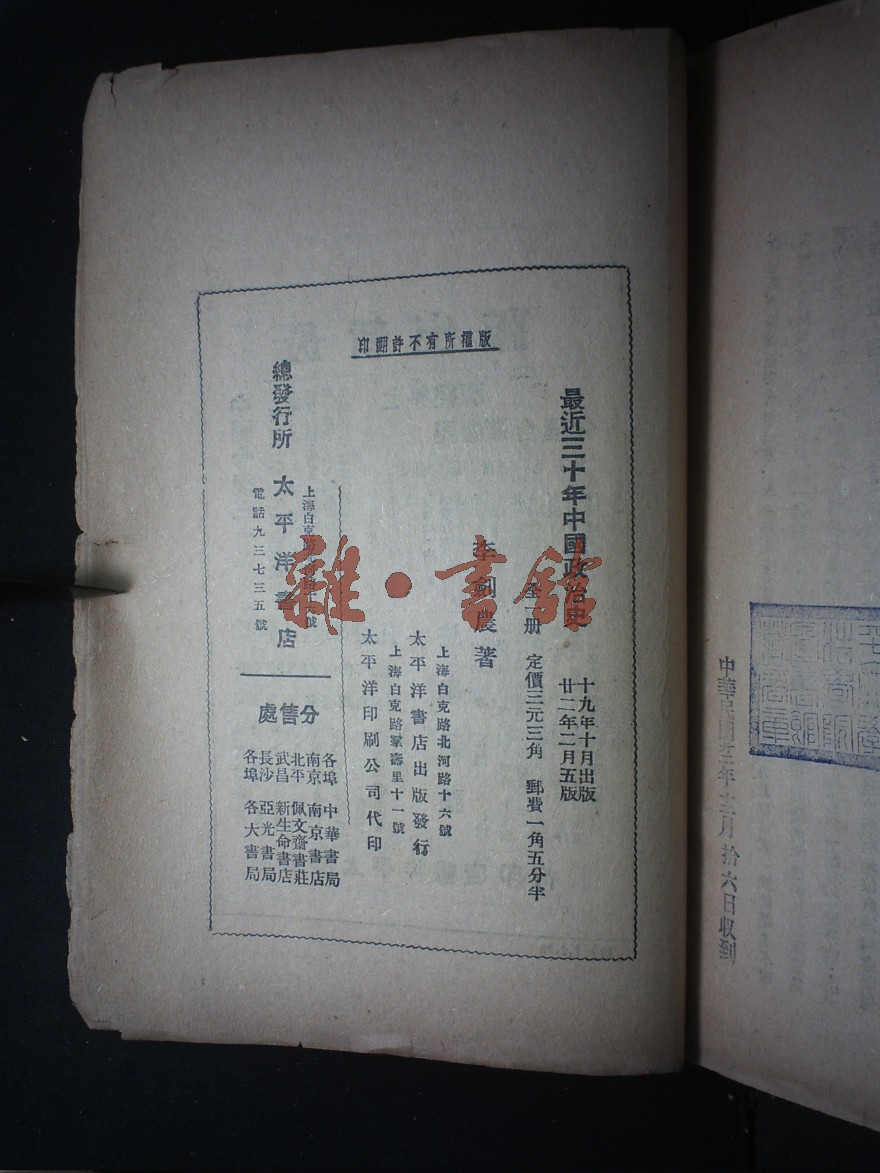 版權所有不許翻印
最近三十年中國政治史
十九年十月出版
廿二年二月五版
全一册 定價三元三角 郵費一角五分半
李劍農著
上海白克路北河路十六號
太平洋書店出版發行
上海白克路羣壽里十一號
太平洋印刷公司代印
上海白克路
總發行所 太平洋書店
電話九三七三五號
分售處
各埠 中華書局
南京 南京書店
北平 佩文齋書莊
武昌 新生命書店
長沙 亞光書局
各埠 各大書局
雜·書館
拾六日收到